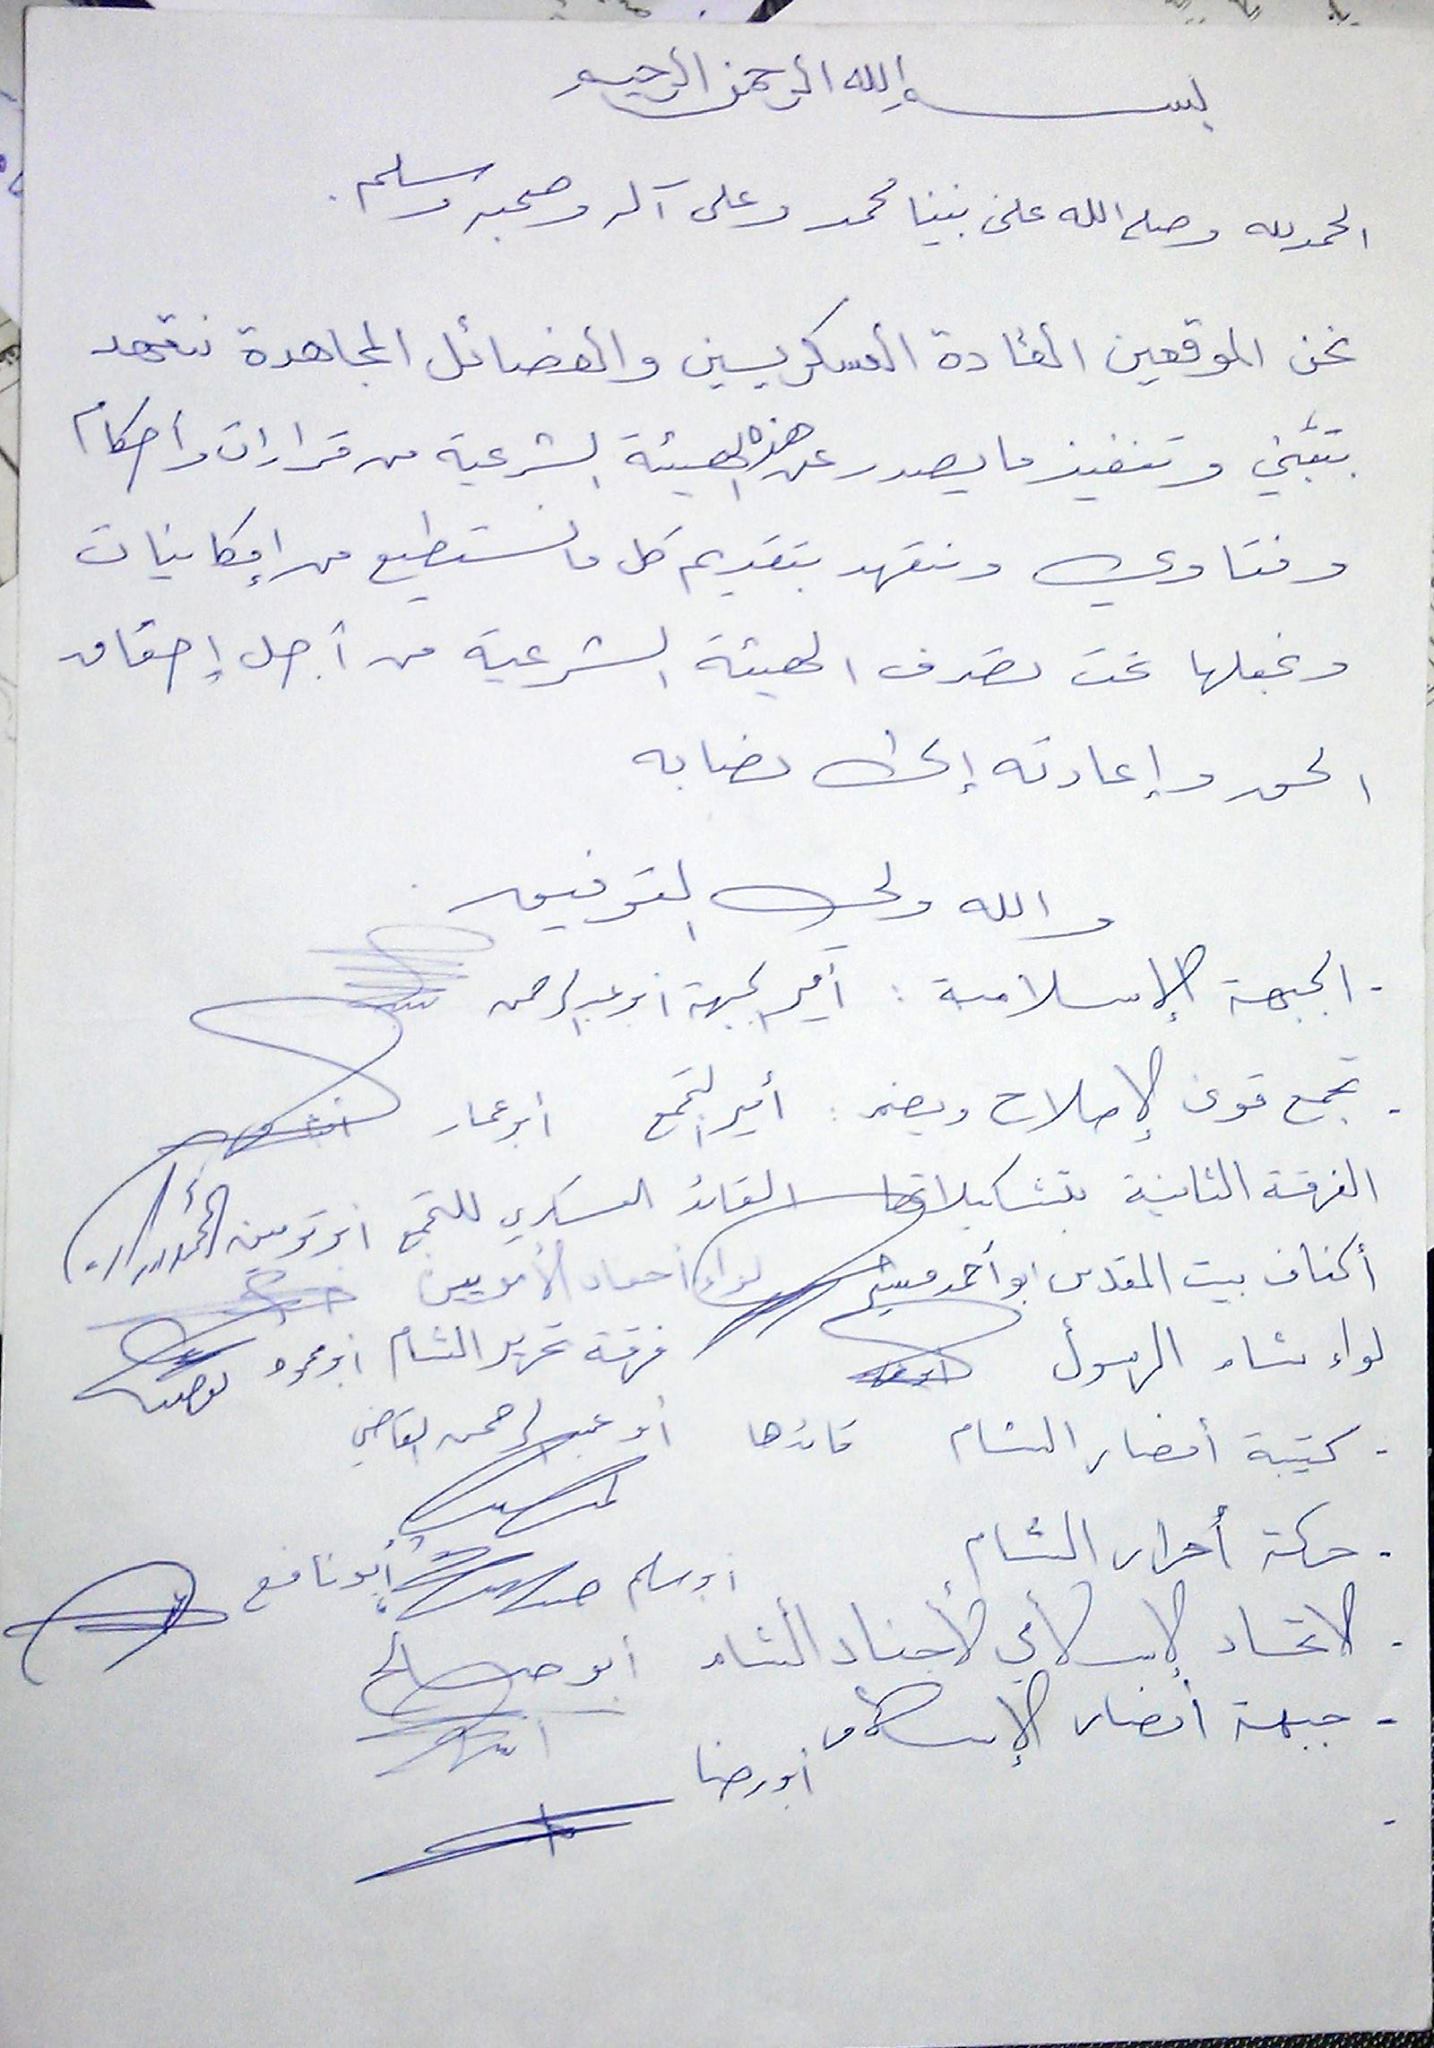 بسم الله الرحمن الرحيم
الحمد لله وصلى الله على نبينا محمد وعلى آله وصحبه وسلم.
نحن الموقعين القادة العسكريين والفصائل المجاهدة نتعهد
بتبني وتنفيذ ما يصدر عن هذه الهيئة الشرعية من قرارات وأحكام
وفتاوي ونتعهد بتقديم كل ما نستطيع من إمكانيات
ونجعلها تحت تصرف الهيئة الشرعية من أجل إحقاق
الحق وإعادته إلى نصابه
والله ولي التوفيق.
- الجبهة الإسلامية : أمير الجبهة أبو عبد الرحمن
- تجمع قوى الإصلاح ويضم : أمير التجمع أبو عمار
الفرقة الثانية بتشكيلاتها القائد العسكري للتجمع أبو
أكناف بيت المقدس أبو أحمد لواء أحفاد الأمويين
لواء شام الرسول فرقة تحرير الشام أبو
- كتيبة أنصار الشام قائدها أبو عبد الرحمن القاضي
- حركة أحرار الشام أبو مسلم أبو نافع
- الاتحاد الإسلامي لأجناد الشام أبو صالح
- جبهة أنصار الإسلام
أبو رضا
-